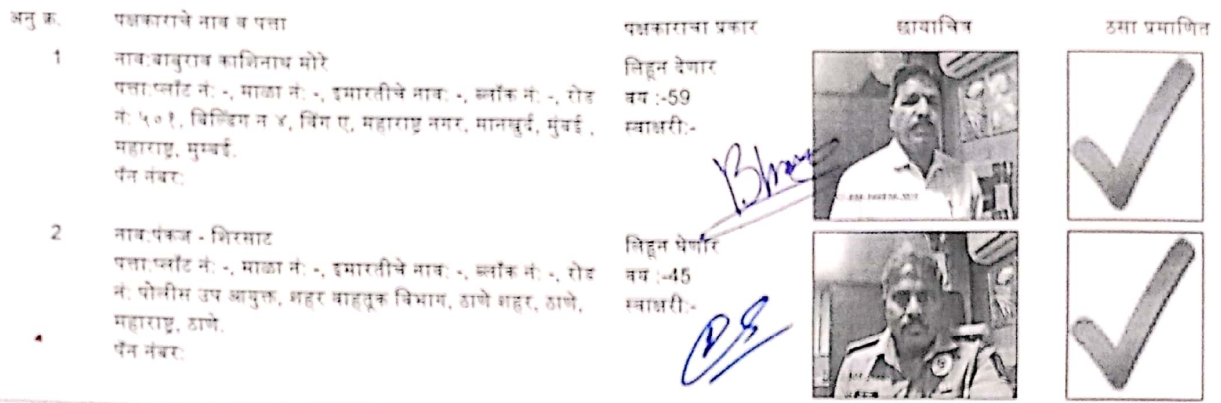 अनु क्र. पक्षकाराचे नाव व पत्ता पक्षकाराचा प्रकार छायाचित्र ठसा प्रमाणित
1 नाव:बाबुराव काशिनाथ मोरे
पत्ता:प्लॉट नं: -, माळा नं: -, इमारतीचे नाव: -, ब्लॉक नं: -, रोड
नं: ५०१, बिल्डिंग न ४, विंग ए, महाराष्ट्र नगर, मानखुर्द, मुंबई ,
महाराष्ट्र, मुम्बई.
पॅन नंबर:
लिहून देणार
वय :-59
स्वाक्षरी:-
2 नाव:पंकज - शिरसाट
पत्ता:प्लॉट नं: -, माळा नं: -, इमारतीचे नाव: -, ब्लॉक नं: -, रोड
नं: पोलीस उप आयुक्त, शहर वाहतूक विभाग, ठाणे शहर, ठाणे,
महाराष्ट्र, ठाणे.
पॅन नंबर:
लिहून घेणार
वय :-45
स्वाक्षरी:-